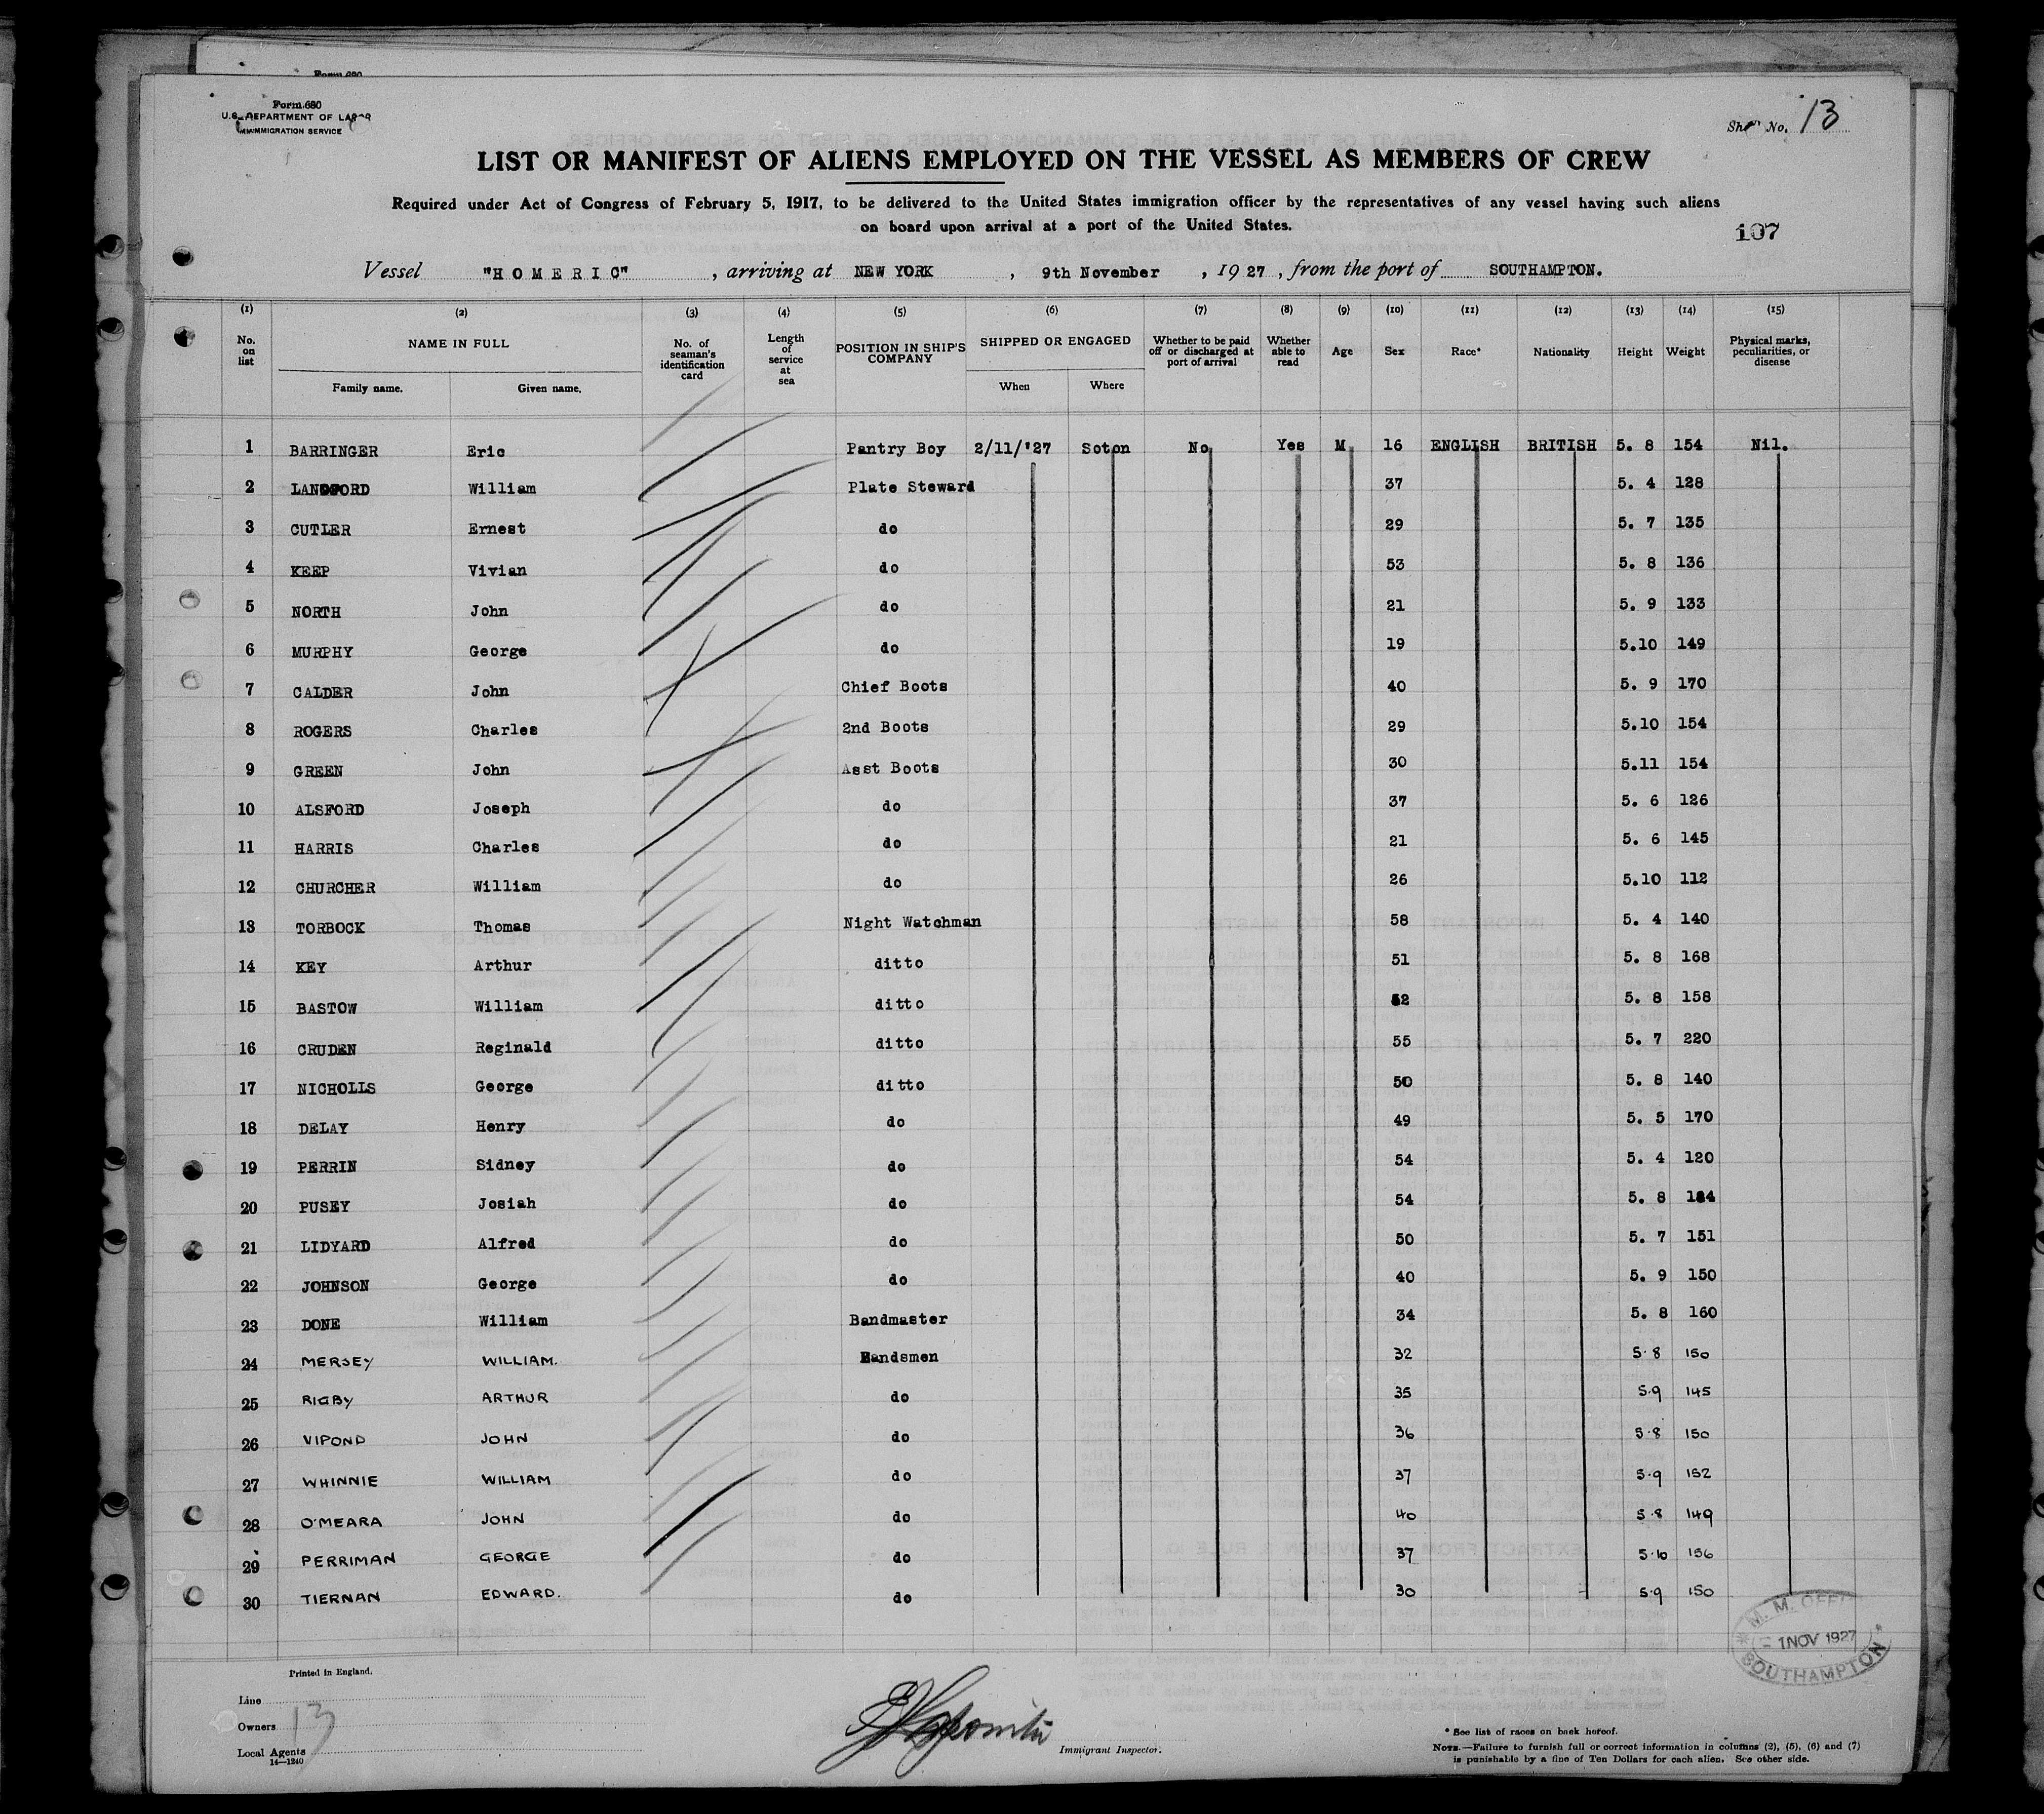 Form 680
Form 680
U.S. DEPARTMENT OF LABOR
IMMIGRATION SERVICE
Sheet No. 13
LIST OR MANIFEST OF ALIENS EMPLOYED ON THE VESSEL AS MEMBERS OF CREW
Required under Act of Congress of February 5, 1917, to be delivered to the United States immigration officer by the representatives of any vessel having such aliens
on board upon arrival at a port of the United States.
107
Vessel "HOMERIC", arriving at NEW YORK, 9th November, 1927, from the port of SOUTHAMPTON.
(1) (2) (3) (4) (5) (6) (7) (8) (9) (10) (11) (12) (13) (14) (15)
No. on list NAME IN FULL Family name. Given name. No. of seaman's identification card Length of service at sea POSITION IN SHIP'S COMPANY SHIPPED OR ENGAGED When Where Whether to be paid off or discharged at port of arrival Whether able to read Age Sex Race* Nationality Height Weight Physical marks, peculiarities, or disease
1 BARRINGER Eric Pantry Boy 2/11/'27 Soton No Yes M 16 ENGLISH BRITISH 5. 8 154 Nil.
2 LANGFORD William Plate Steward 37 5. 4 128
3 CUTLER Ernest do 29 5. 7 135
4 KEEP Vivian do 53 5. 8 136
5 NORTH John do 21 5. 9 133
6 MURPHY George do 19 5.10 149
7 CALDER John Chief Boots 40 5. 9 170
8 ROGERS Charles 2nd Boots 29 5.10 154
9 GREEN John Asst Boots 30 5.11 154
10 ALSFORD Joseph do 37 5. 6 126
11 HARRIS Charles do 21 5. 6 145
12 CHURCHER William do 26 5.10 112
13 TORBOCK Thomas Night Watchman 58 5. 4 140
14 KEY Arthur ditto 51 5. 8 168
15 BASTOW William ditto 52 5. 8 158
16 CRUDEN Reginald ditto 55 5. 7 220
17 NICHOLLS George ditto 50 5. 8 140
18 DELAY Henry do 49 5. 5 170
19 PERRIN Sidney do 54 5. 4 120
20 PUSEY Josiah do 54 5. 8
21 LIDYARD Alfred do 50 5. 7 151
22 JOHNSON George do 40 5. 9 150
23 DONE William Bandmaster 34 5. 8 160
24 MERSEY WILLIAM. Bandsmen 32 5.8 150
25 RIGBY ARTHUR do 35 5.9 145
26 VIPOND JOHN do 36 5.8 150
27 WHINNIE WILLIAM do 37 5.9 152
28 O'MEARA JOHN do 40 5.8 149
29 PERRIMAN GEORGE do 37 5.10 156
30 TIERNAN EDWARD. do 30 5.9 150
M. M. OFFI
1 NOV 1927
SOUTHAMPTON
Printed in England.
Line
Owners
13
Local Agents
14—1240
Immigrant Inspector.
* See list of races on back hereof.
NOTE.—Failure to furnish full or correct information in columns (2), (5), (6) and (7)
is punishable by a fine of Ten Dollars for each alien. See other side.